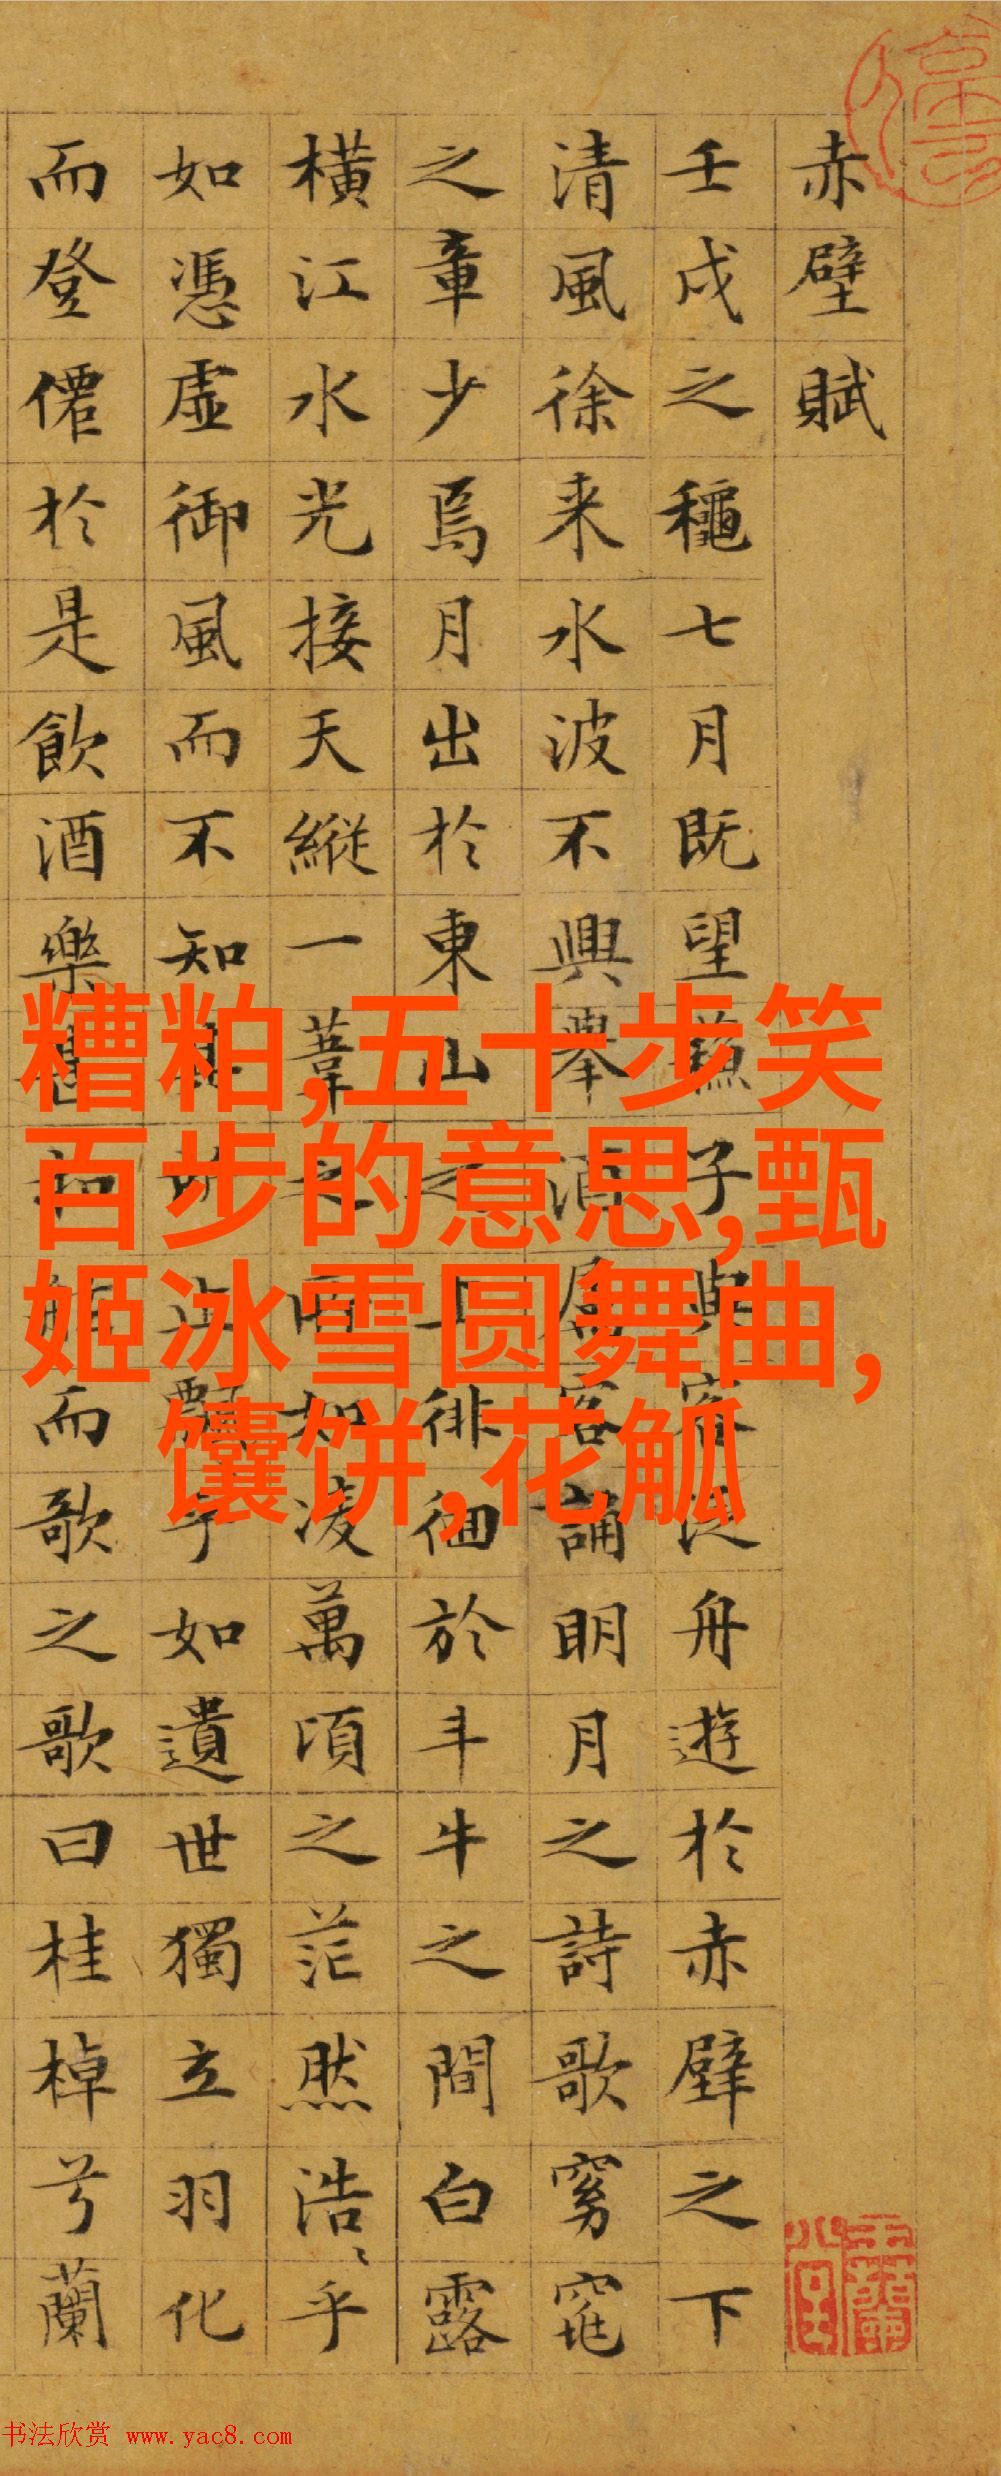 赤壁賦
壬戌之龝七月既望蘇子與客泛舟遊於赤壁之下
清風徐来水波不興舉酒屬客誦明月之詩歌窈窕
之章少焉月出於東山之上徘徊於斗牛之間白露
橫江水光接天縱一葦之所如凌萬頃之茫然浩〻乎
如憑虛御風而不知其所止飄乎如遺世獨立羽化
而登僊於是飲酒樂甚扣舷而歌之歌曰桂棹兮蘭
糟粕,五十步笑
百步的意思,甄
姬冰雪圆舞曲,
馕饼,花觚
书法欣赏 www.yac8.com